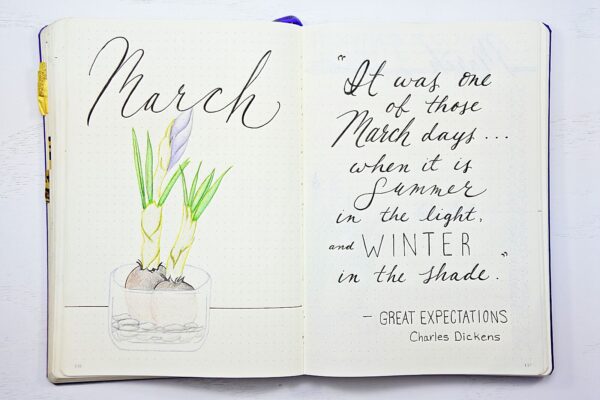 March
"It was one
of those
March days...
when it is
Summer
in the light,
and WINTER
in the shade."
- GREAT EXPECTATIONS
Charles Dickens